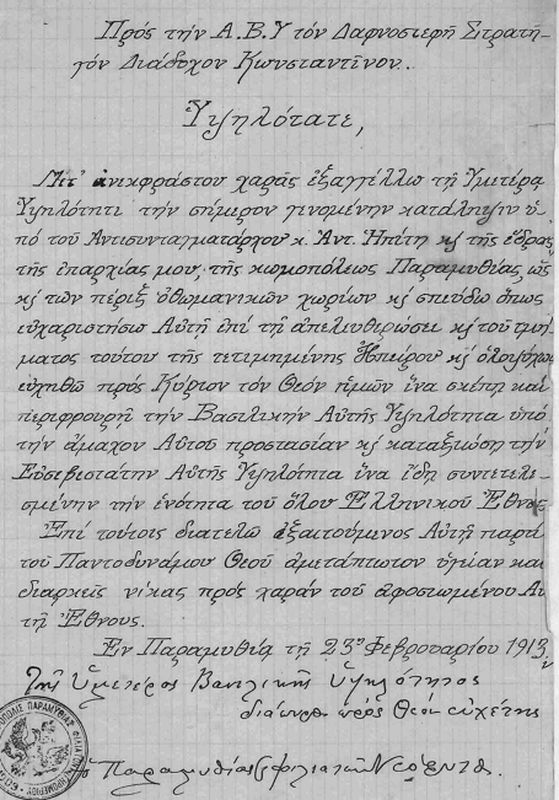 Πρός τήν Α.Β.Υ τόν Δαφνοστεφῆ Στρατη-
γόν Διάδοχον Κωνσταντῖνον..
Ὑψηλότατε,
Μετ' ἀνεκφράστου χαρᾶς ἐξαγγέλλω τῇ Ὑμετέρᾳ
Ὑψηλότητι τήν σήμερον γενομένην κατάληψιν ὑ-
πό τοῦ Αντισυνταγματάρχου κ. Ἀντ. Ἠπίτη κ̣ τῆς ἕδρας
τῆς ἐπαρχίας μου, τῆς κωμοπόλεως Παραμυθίας, ὡς
κ̣ τῶν πέριξ ὀθωμανικῶν χωρίων κ̣ σπεύδω ὅπως
εὐχαριστήσω Αὐτῇ ἐπί τῇ ἀπελευθερώσει κ̣ τοῦ τμή-
ματος τούτου τῆς τετιμημένης Ἠπείρου κ̣ ὁλοψύχως
εὐχηθῶ πρός Κύριον τόν Θεόν ἡμῶν ἵνα σκέπῃ καί
περιφρουρῇ τήν Βασιλικήν Αὐτῆς Ὑψηλότητα ὑπό
τήν ἄμαχον Αὐτοῦ προστασίαν κ̣ καταξιώσῃ τήν
Εὐσεβεστάτην Αὐτῆς Ὑψηλότητα ἵνα ἴδῃ συντετελε-
σμένην τήν ἑνότητα τοῦ ὅλου Ἑλληνικοῦ Ἔθνους
Ἐπί τούτοις διατελῶ ἐξαιτούμενος Αὐτῇ παρά
τοῦ Παντοδυνάμου Θεοῦ ἀμετάπτωτον ὑγείαν καί
διαρκεῖς νίκας πρός χαράν τοῦ ἀφοσιωμένου Αὐ
τῇ Ἔθνους.
Ἐν Παραμυθίᾳ τῇ 23ῃ Φεβρουαρίου 1913
Τῆς Ὑμετέρας Βασιλικῆς Ὑψηλότητος
διάπυρος πρός Θεόν εὐχέτης
ὁ Παραμυθίας